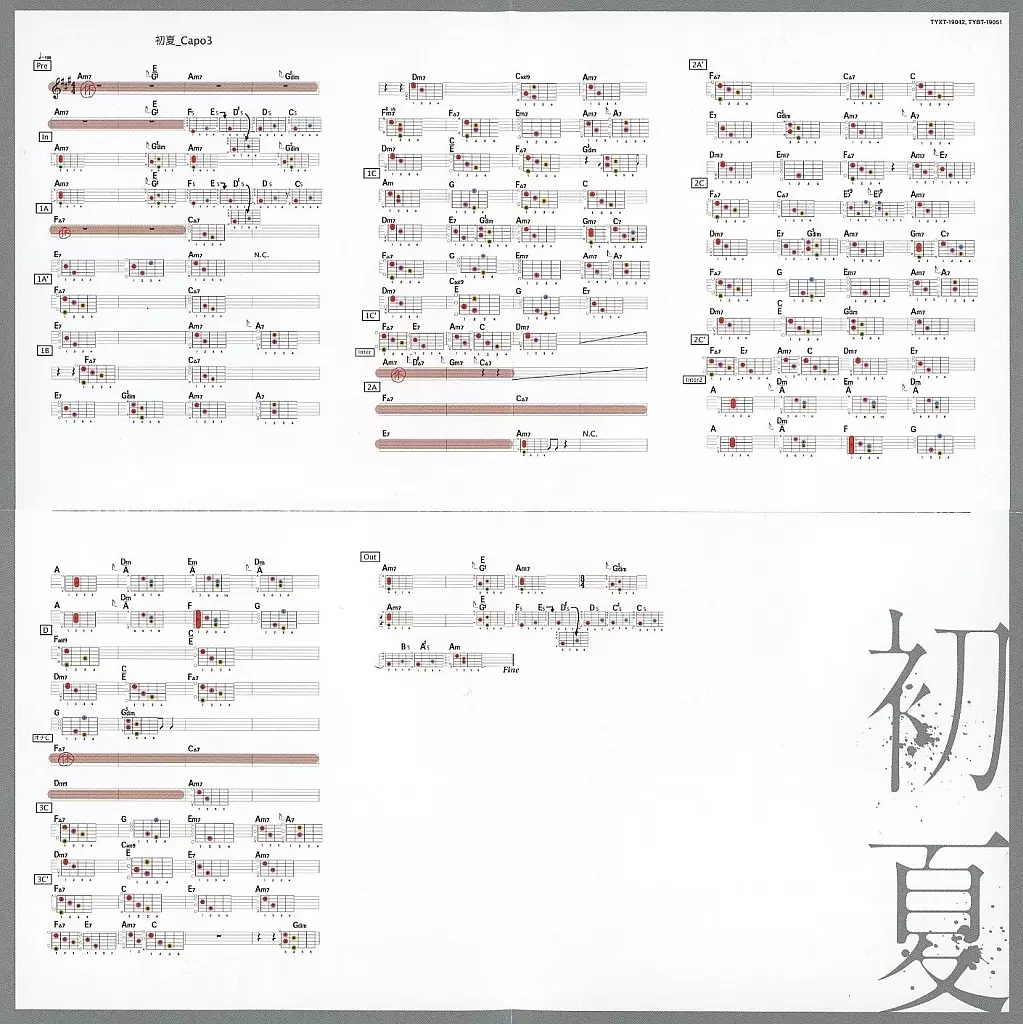 TYXT-19042, TYBT-19051
初夏_Capo3
Pre
Am7 E G# Am7 G#dim
Am7 E G# F5 E5 D#5 D5 C5
In
Am7 G#dim Am7 G#dim
Am7 E G# F5 E5 D#5 D5 C5
1A
F△7 C△7
休
E7 Am7 N.C.
1A'
F△7 C△7
E7 Am7 A7
1B
F△7 C△7
E7 G#dim Am7 A7
Dm7 Cadd9 Am7
F△7 Em7 Am7 A7
Dm7 C E F△7 G#dim
1C
Am G F△7 C
Dm7 E7 G#dim Am7 Gm7 C7
F△7 G Em7 Am7 A7
Dm7 Cadd9 E G E7
1C'
F△7 E7 Am7 C Dm7
Inter
Am7 Gm7 C△7
休
2A
F△7 C△7
E7 Am7 N.C.
2A'
F△7 C△7 C
E7 G#dim Am7 A7
Dm7 Em7 F△7 Am7 E7
2C
F△7 C△7
Dm7 E7 G#dim Am7 Gm7 C7
F△7 G Em7 Am7 A7
Dm7 C E G#dim Am7
2C'
F△7 E7 Am7 C Dm7 E7
Inter2
A Dm A Em A Dm A
A Dm A F G
A Dm A Em A Dm A
A Dm A F G
D
Fadd9 C E
Dm7 C E F△7
G G#dim
オチC
F△7 C△7
休
Dm9 Am7
3C
F△7 G Em7 Am7 A7
Dm7 Cadd9 E E7 Am7
3C'
F△7 C E7 Am7
F△7 E7 Am7 C G#dim
Out
Am7 E G# Am7 G#dim
Am7 E G# F5 E5 D#5 D5 C#5 C5
B5 A#5 Am
Fine
初夏